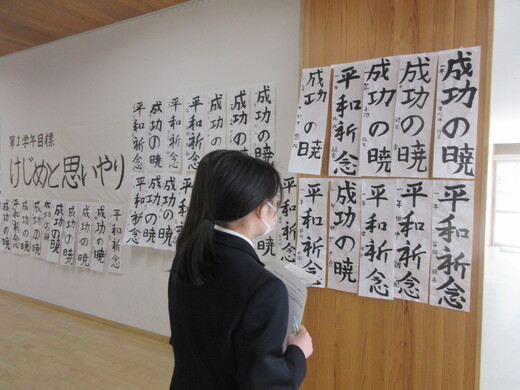 第2学年目標
けじめと思いやり
平和祈念
成功の暁
平和祈念
平和祈念
成功の暁
成功の暁
成功の暁
平和祈念
成功の暁
成功の暁
平和祈念
成功の暁
成功の暁
成功の暁
成功の暁
成功の暁
成功の暁
成功の暁
成功の暁
平和祈念
成功の暁
平和祈念
成功の暁
成功の暁
成功の暁
平和祈念
成功の暁
平和祈念
平和祈念
平和祈念